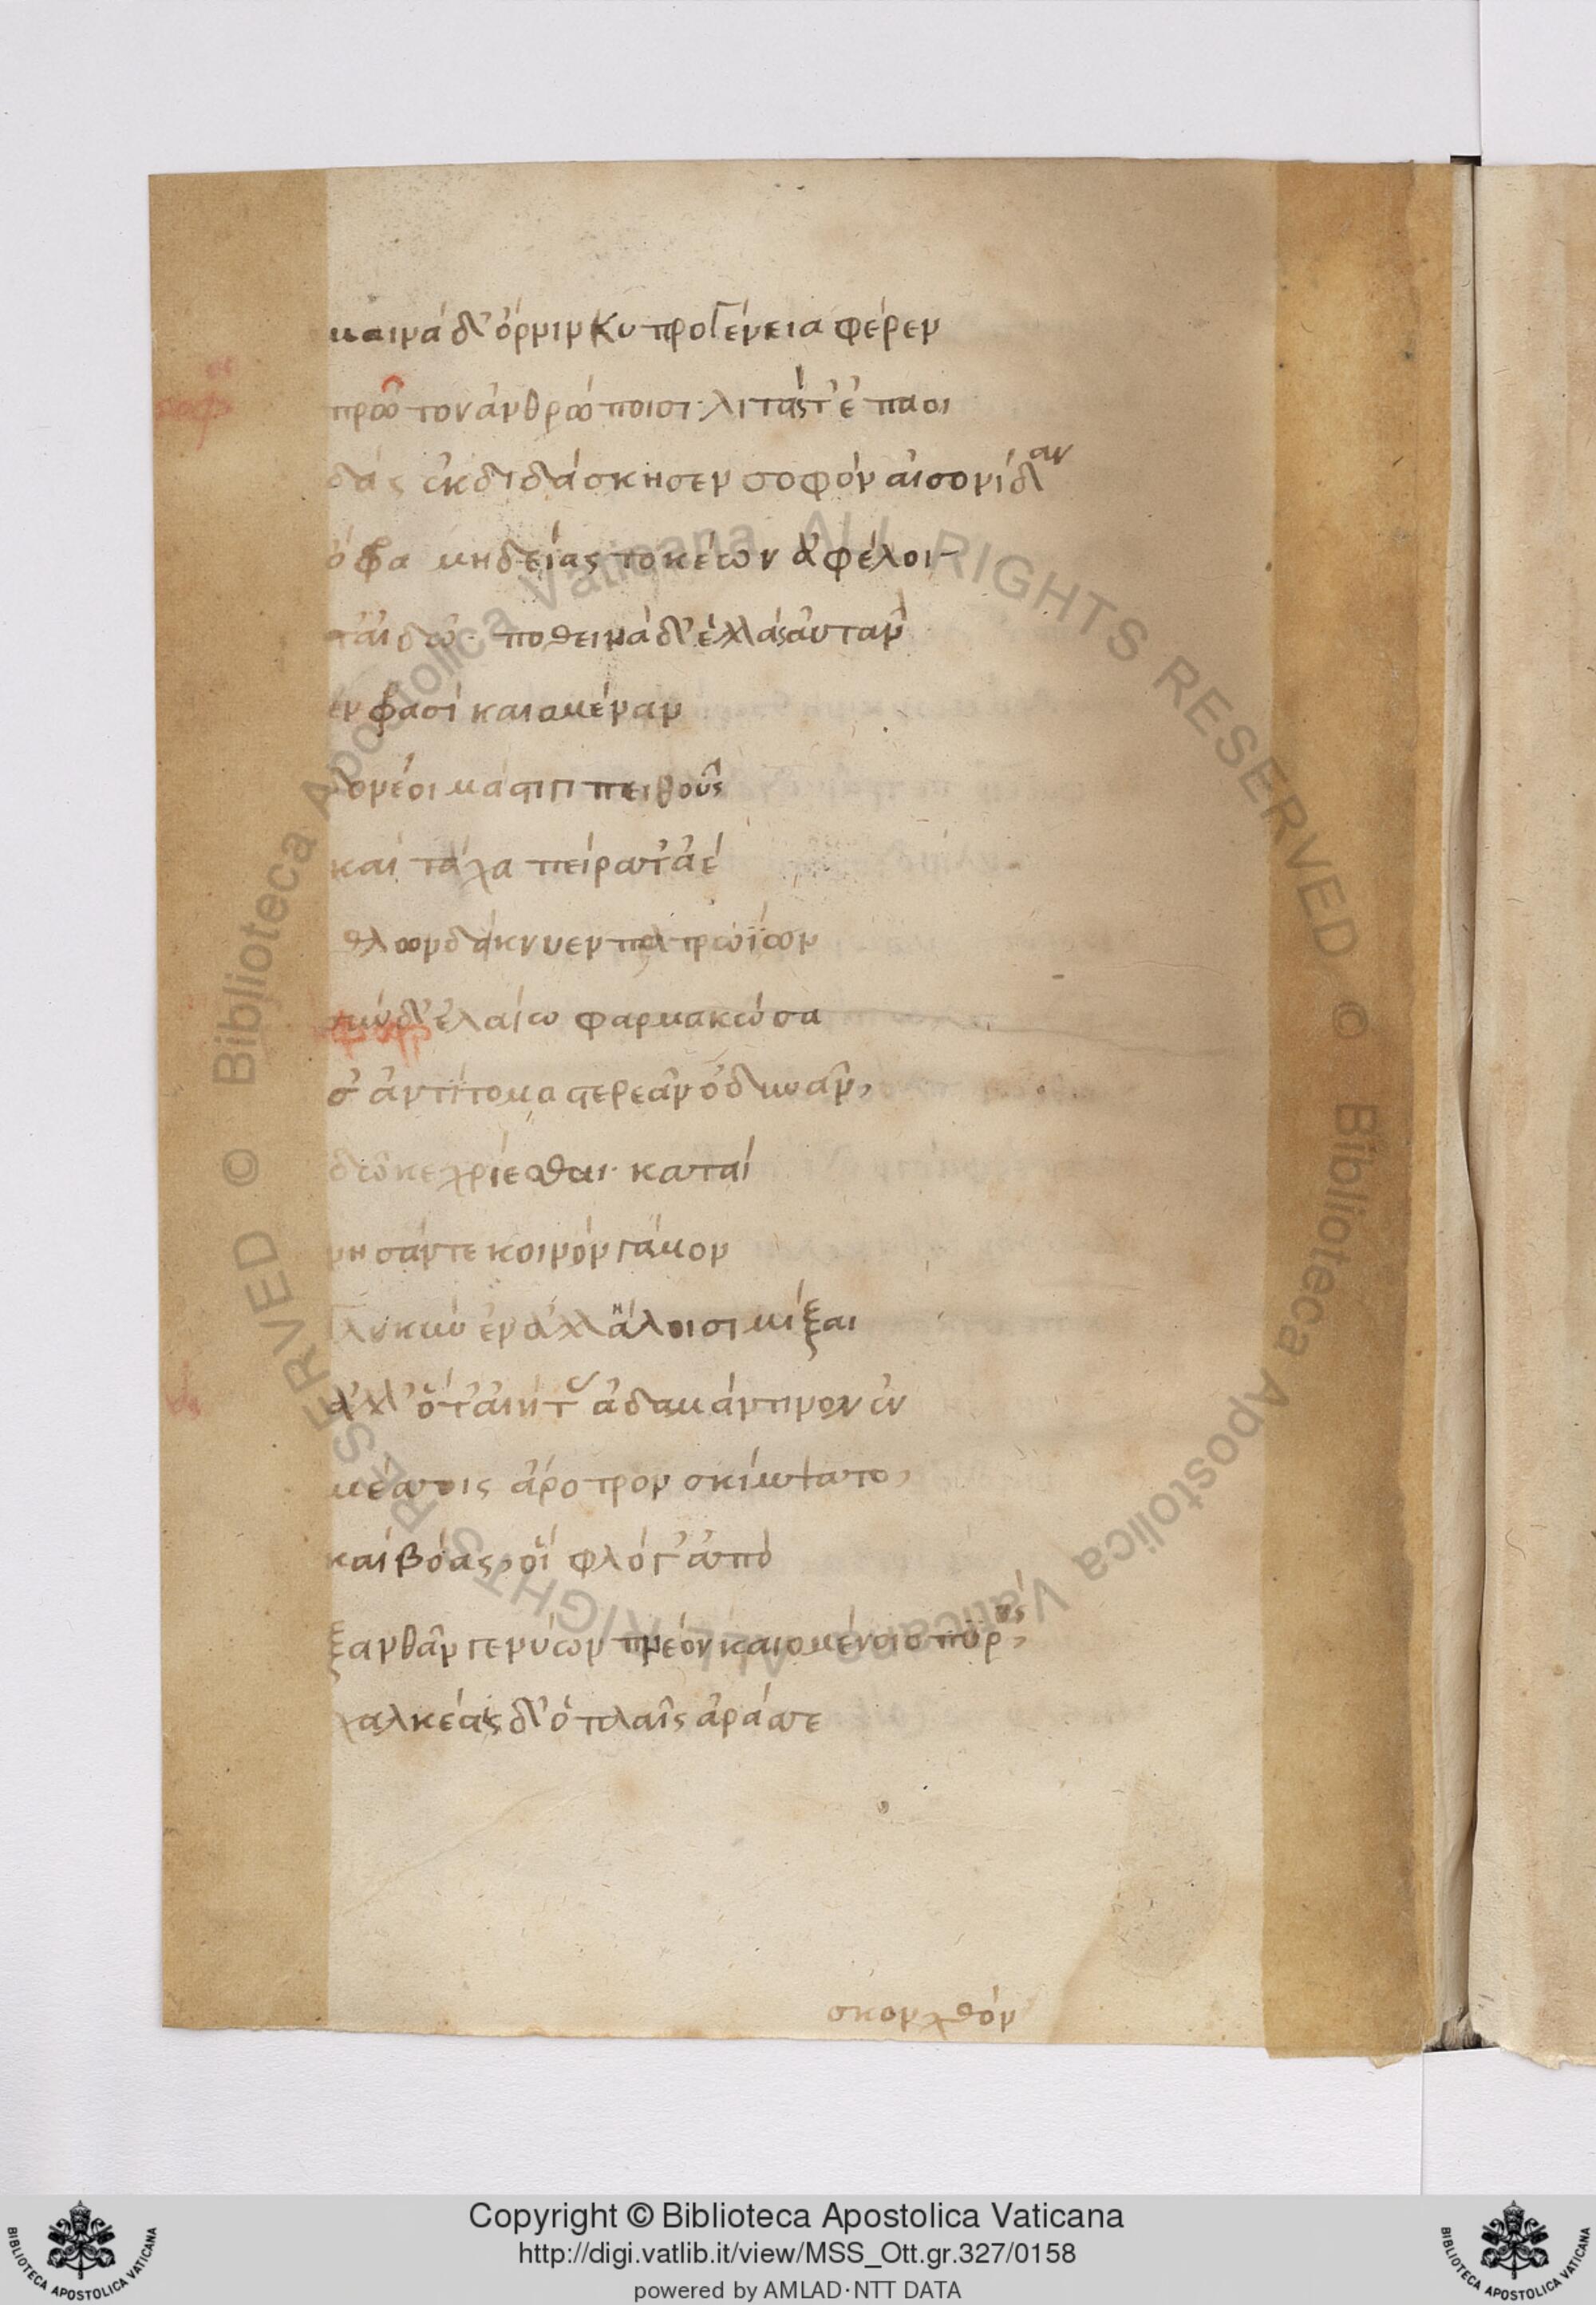 μαινάδ' ὄρνιν Κυπρογένεια φέρεν
πρῶτον ἀνθρώποισι· λιτάς τ' ἐπαοι
δὰς ἐκδιδάσκησεν σοφὸν αἰσονίδαν
ὄφρα μηδείας τοκέων ἀφέλοι
τ' αἰδῶ· ποθεινὰ δ' ἑλλὰς αὐτὰν
ἐν φρασὶ καιομέναν
δονέοι μάστιγι πειθοῦς
καὶ τάχα πείρατ' ἀέ
θλων δάκνυεν πατρωΐων
σὺν δ' ἐλαίω φαρμακώσα
σ' ἀντίτομα στερεᾶν ὀδυνᾶν,
δῶκε χρίεσθαι· καταί
νησάν τε κοινὸν γάμον
γλυκὺν ἐν ἀλλάλοισι μίξαι
ἀλλ' ὅτ' αἰήτ ἀδαμάντινον ἐν
μέσσοις ἄροτρον σκίμψατο,
καὶ βόας, οἳ φλόγ' ἀπὸ
ξανθᾶν γενύων πνέον καιομένοιο πυρός,
χαλκέαις δ' ὁπλαῖς ἀράσσε
σκον χθόν
Copyright © Biblioteca Apostolica Vaticana
http://digi.vatlib.it/view/MSS_Ott.gr.327/0158
powered by AMLAD·NTT DATA